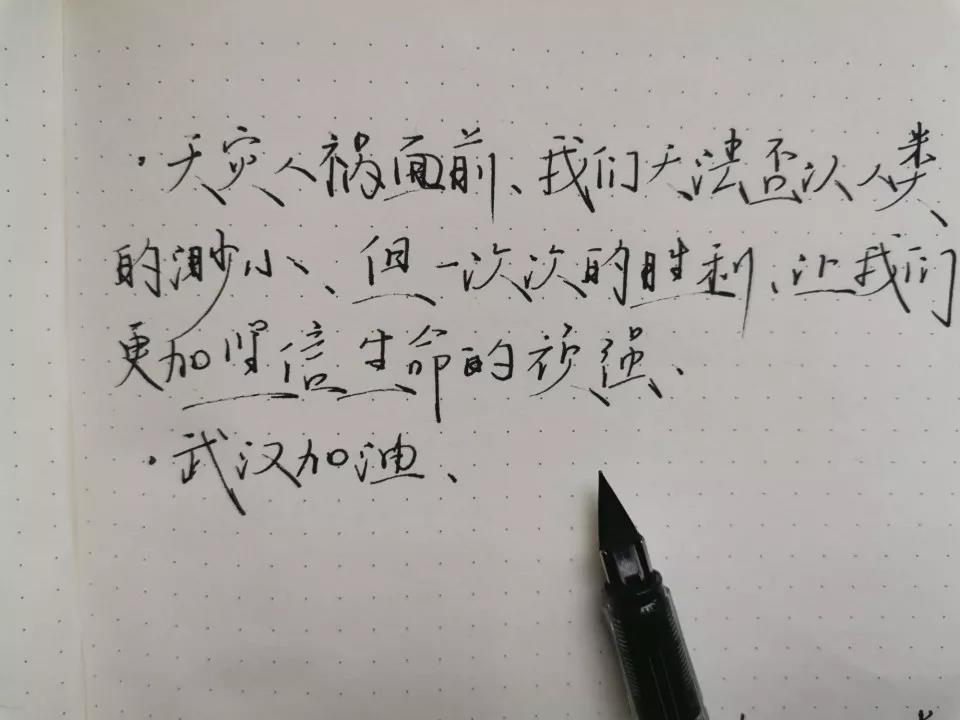 ·天灾人祸面前、我们无法否认人类
的渺小、但一次次的胜利、让我们
更加坚信生命的顽强、
·武汉加油、